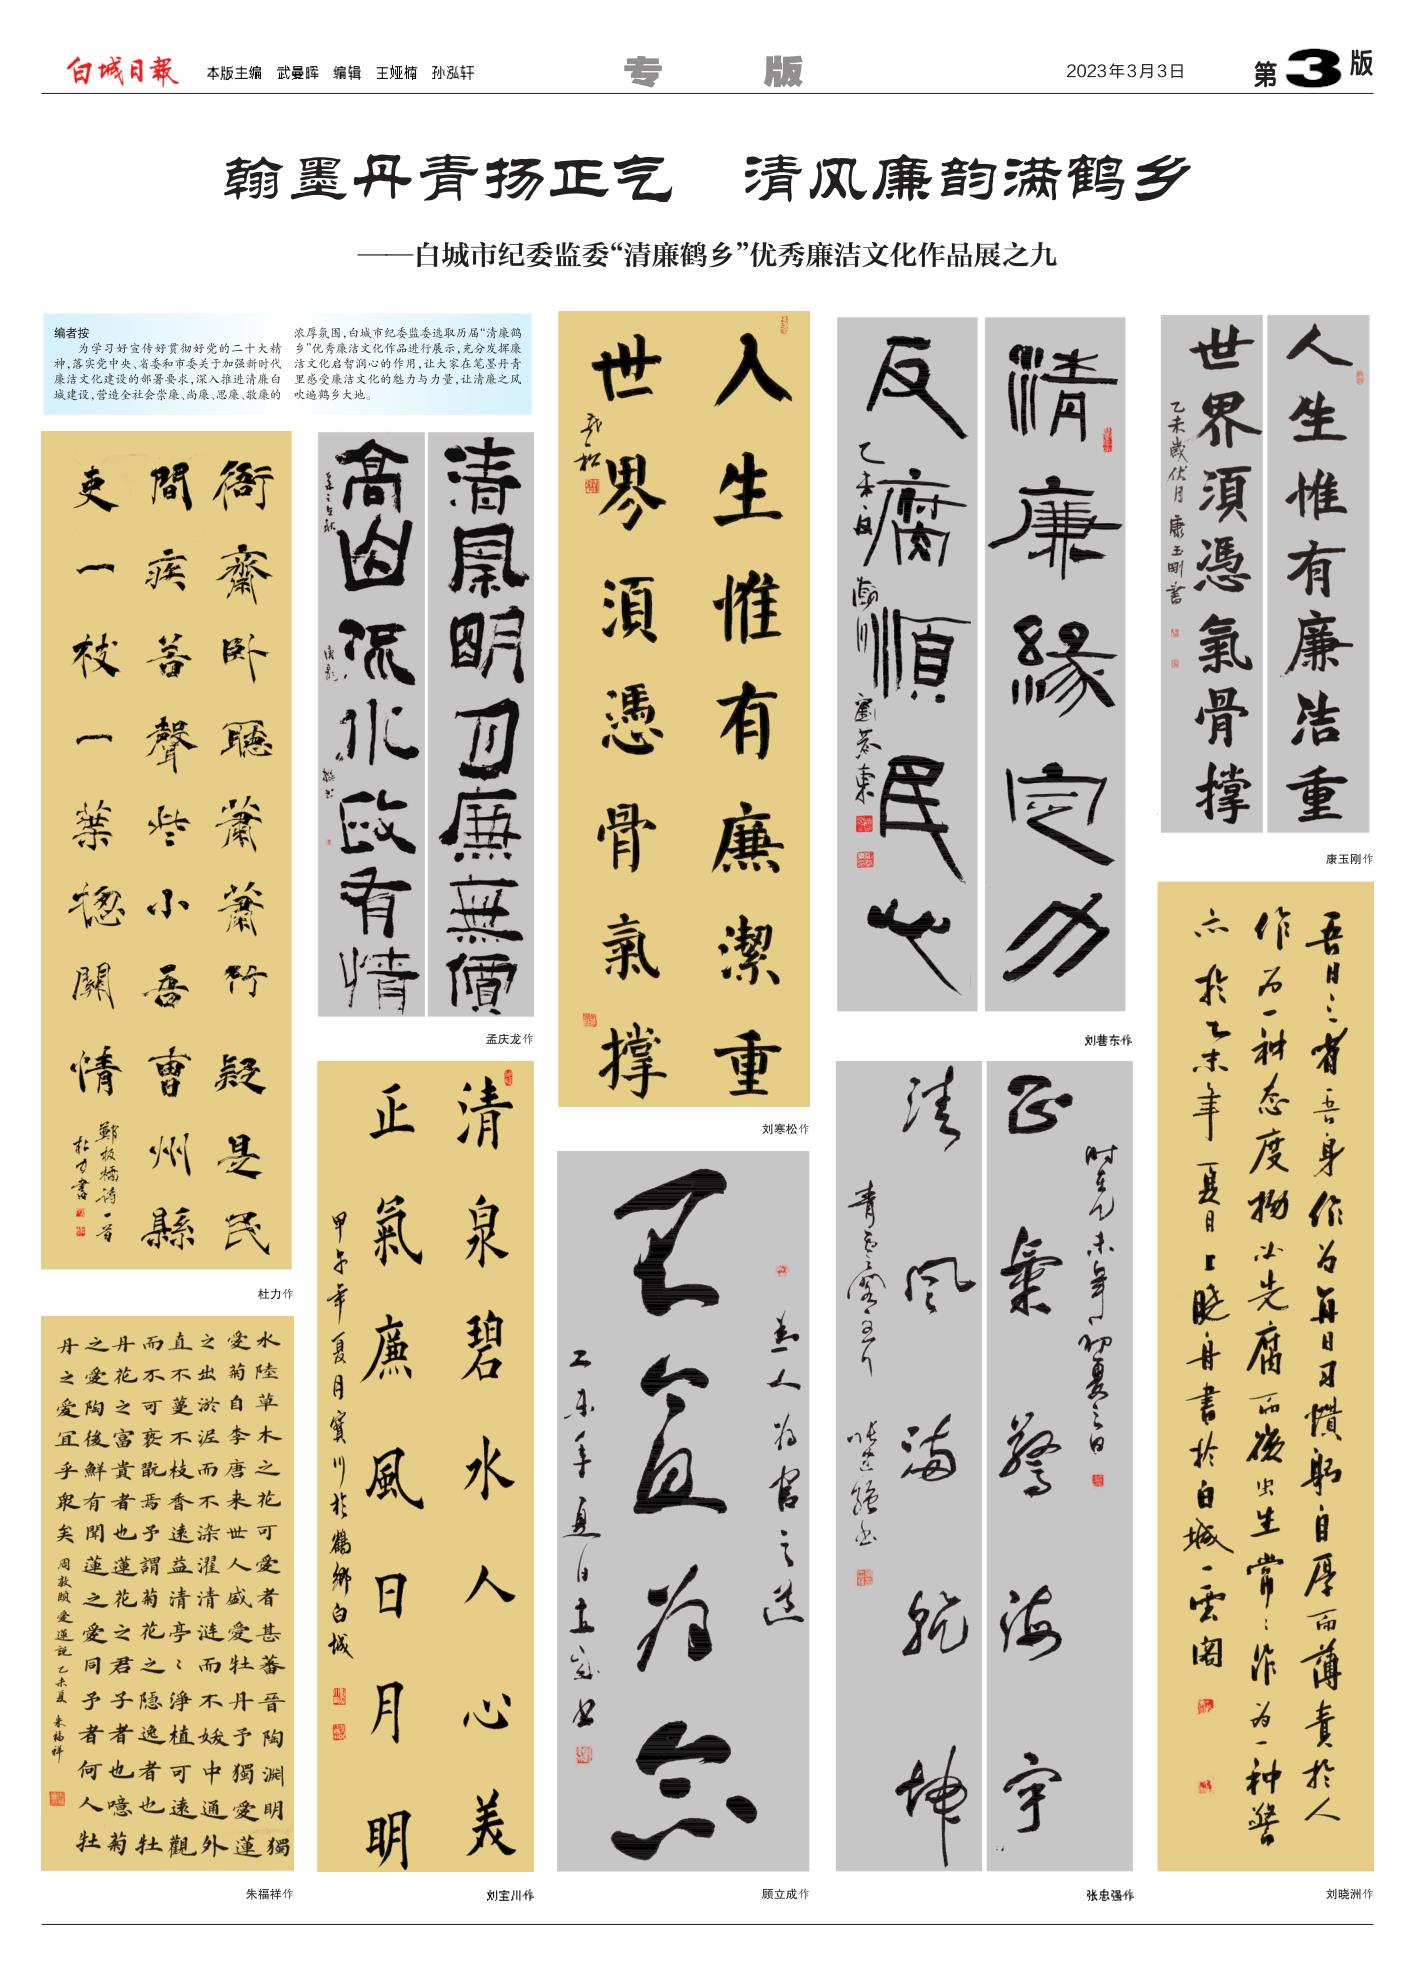 白城日報
本版主编 武曼晖 编辑 王娅楠 孙泓轩
专 版
2023年3月3日
第3版
翰墨丹青扬正气 清风廉韵满鹤乡
——白城市纪委监委“清廉鹤乡”优秀廉洁文化作品展之九
编者按
为学习好宣传好贯彻好党的二十大精
神,落实党中央、省委和市委关于加强新时代
廉洁文化建设的部署要求,深入推进清廉白
城建设,营造全社会崇廉、尚廉、思廉、敬廉的
浓厚氛围,白城市纪委监委选取历届“清廉鹤
乡”优秀廉洁文化作品进行展示,充分发挥廉
洁文化启智润心的作用,让大家在笔墨丹青
里感受廉洁文化的魅力与力量,让清廉之风
吹遍鹤乡大地。
衙齋卧聽蕭蕭竹疑是民
間疾苦聲些小吾曹州縣
吏一枝一葉總關情
鄭板橋詩一首
杜力書
杜力作
清風明月廉無價
高山流水政有情
孟庆龙作
人生惟有廉潔重
世界須憑骨氣撑
寒松
刘寒松作
清廉緣定力
反腐順民心
乙未夏
劉巷東
刘巷东作
人生惟有廉洁重
世界須憑氣骨撑
乙未歲伏月 康玉刚書
康玉刚作
水陸草木之花可愛者甚蕃晉陶淵明獨
愛菊自李唐来世人盛愛牡丹予獨愛蓮
之出淤泥而不染濯清涟而不妖中通外
直不蔓不枝香遠益清亭々淨植可遠觀
而不可褻翫焉予謂菊花之隠逸者也牡
丹花之富貴者也蓮花之君子者也噫菊
之愛陶後鮮有聞蓮之愛同予者何人牡
丹之愛宜乎衆矣
周敦頤愛蓮説 乙未夏 朱福祥
朱福祥作
清泉碧水人心美
正氣廉風日月明
甲午年夏月寳川於鶴鄉白城
刘宝川作
为人为官之道
不含直为京
乙未年夏日立成书
顾立成作
时在乙未年初夏之日
正氣驚海宇
清風满乾坤
张忠强作
吾日三省吾身作为每日习惯躬自厚而薄責於人
作为一种态度物必先腐而後虫生常々作为一种警
示於乙未年夏月上晓舟書於白城一雲阁
刘晓洲作